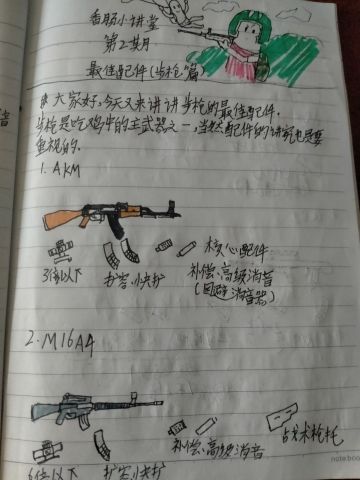 香肠小讲堂
第2期
最佳配件(步枪篇)
大家好,今天又来讲讲步枪的最佳配件.
步枪是吃鸡牛的主武器之一,当然配件的讲究也是要
重视的.
1. AKM
核心配件
3倍以下 扩容.快扩 补偿.高级消音
(回避消音器)
2. M16A4
6倍以下 扩容.快扩 补偿.高级消音 战术枪托
note.boo